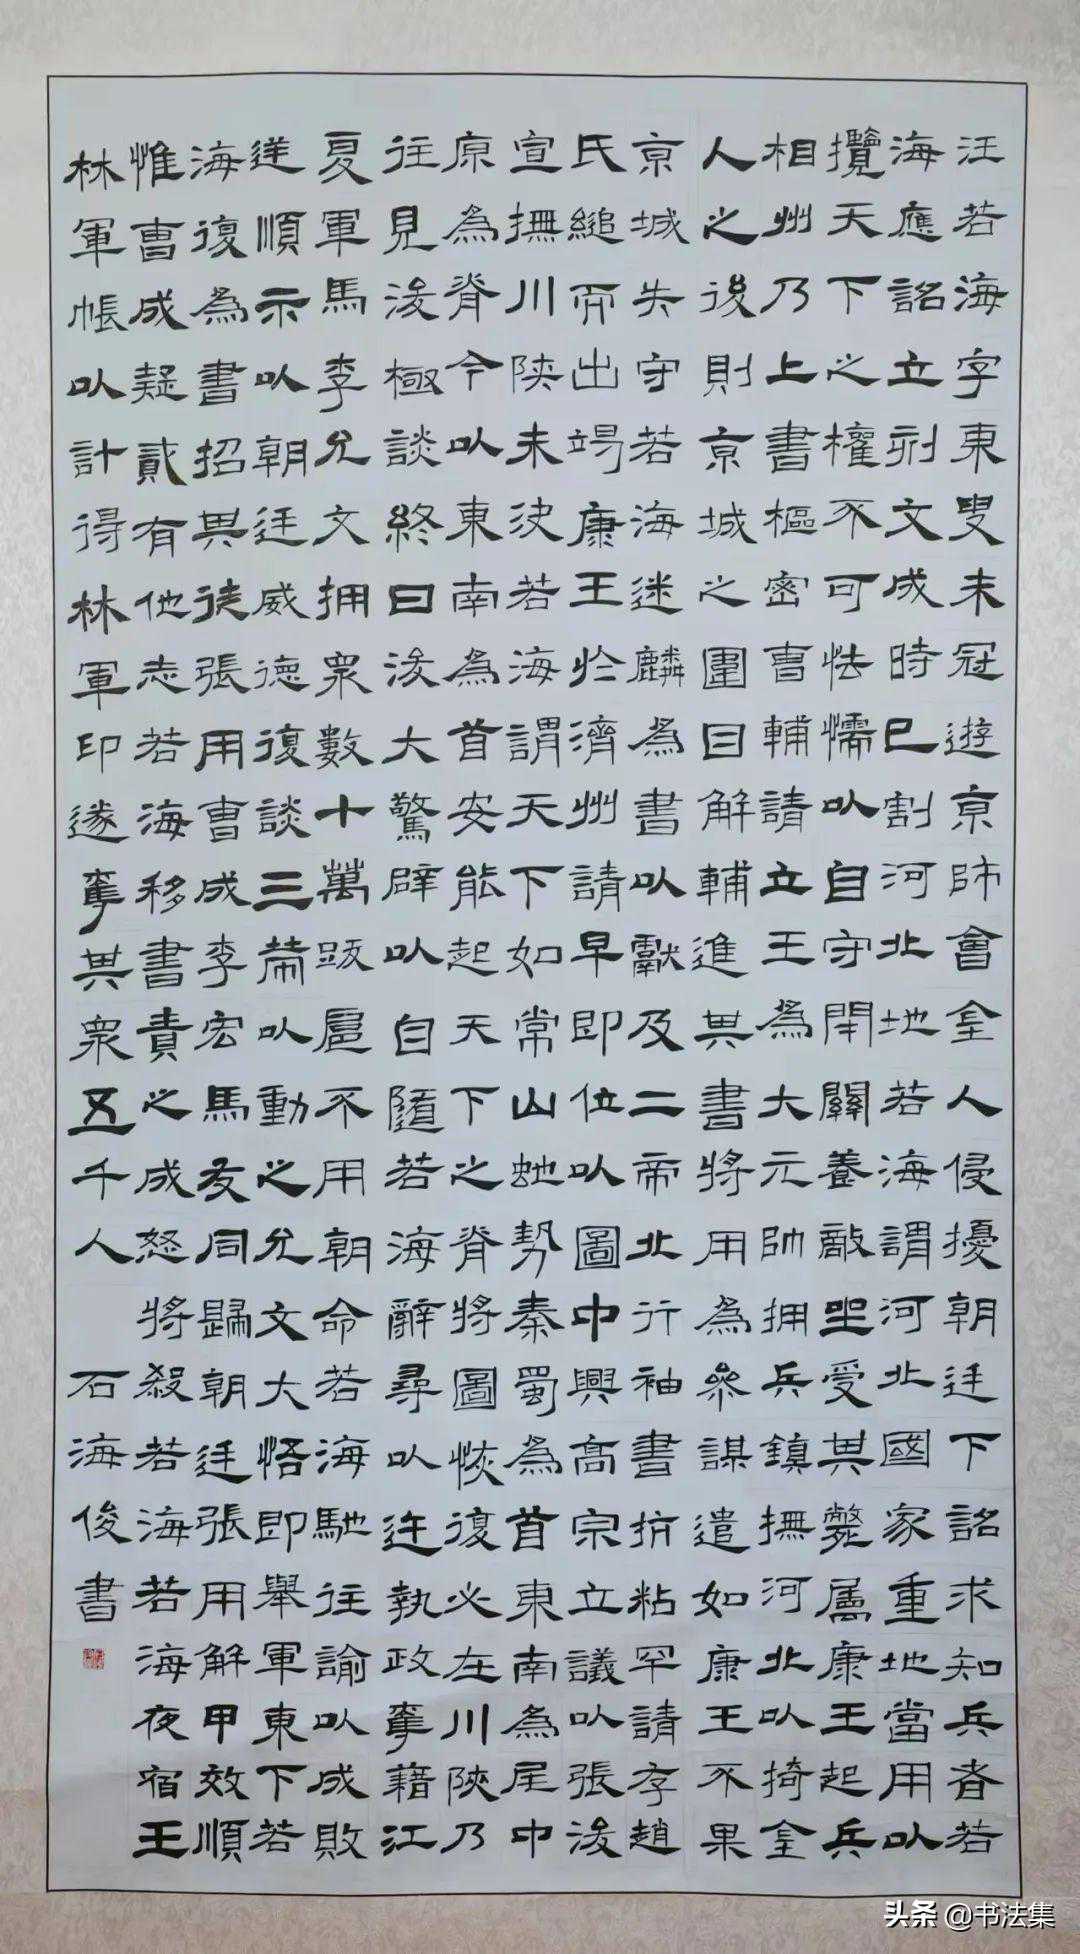 汪若海字東叟未冠遊京師會金人侵擾朝廷下詔求知兵者若
海應詔立剡文成時已割河北地若海謂河北國家重地當用以
攬天下之權不可怯懦以自守閉關養敵坐受其斃屬康王起兵
相州乃上書樞密曹輔請立王為大元帥拥兵鎮撫河北以掎金
人之後則京城之圍自解輔進其書將用為參謀遣如康王不果
京城失守若海迷麟為書以獻及二帝北行袖書抗粘罕請存趙
氏縋而出竭康王於濟州請早即位以圖中興高宗立議以張浚
宣撫川陝未決若海謂天下如常山虵勢秦蜀為首東南為尾中
原為脊今以東南為首安能起天下之脊將圖恢復必在川陝乃
往見浚極談終日浚大驚辟以自隨若海辭尋以迕執政奪籍江
夏軍馬李允文拥眾數十萬跋扈不用朝命若海馳往諭以成敗
逆順示以朝廷威德復談三策以動之允文大悟即舉軍東下若
海復為書招其徒張用曹成李宏馬友同歸朝廷張用解甲效順
惟曹成疑貳有他志若海移書責之成怒將殺若海若海夜宿王
林軍帳以計得林軍印遂奪其眾五千人
石海俊書
头条 @书法集